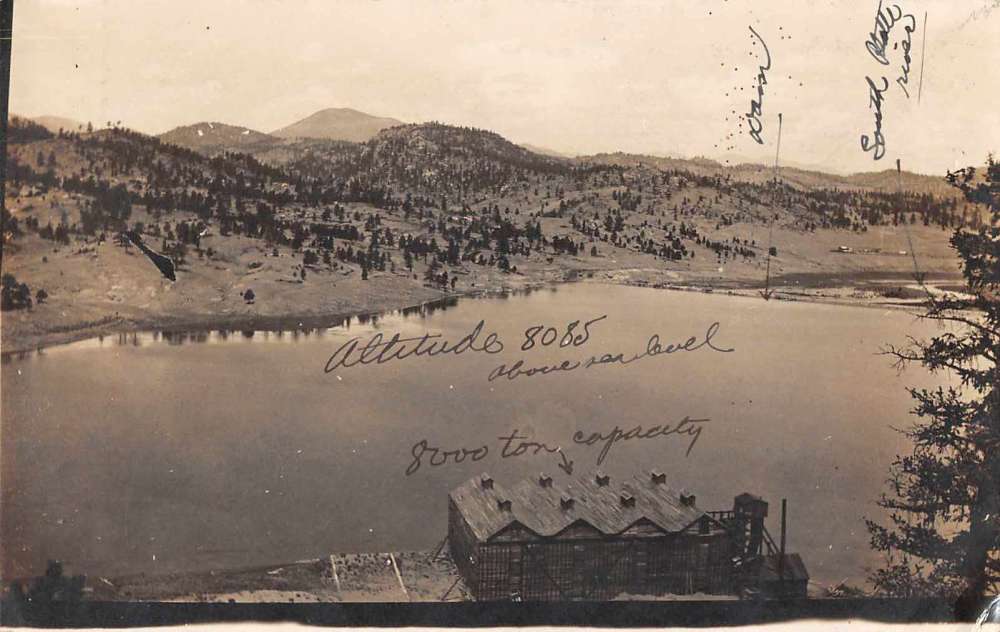 South Platte
river
Altitude 8085
above sea level
8000 ton capacity